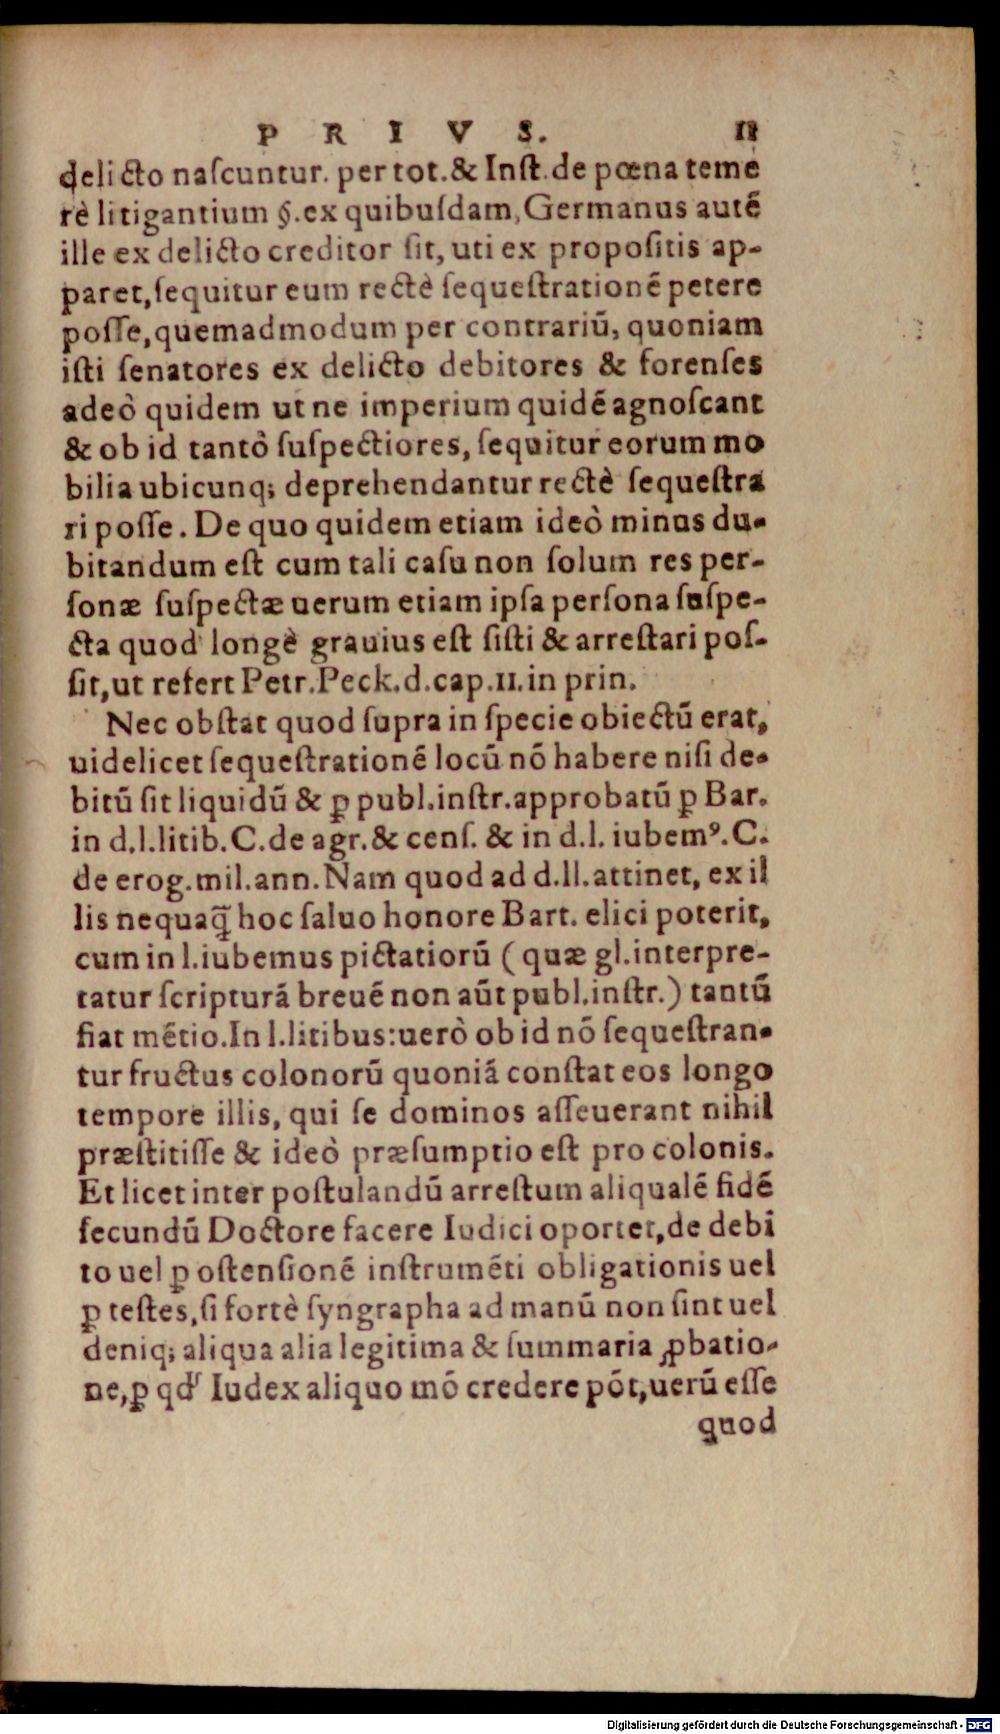 PRIVS. 11
delicto naſcuntur. per tot. & Inſt. de pœna teme
rè litigantium §. ex quibuſdam, Germanus autē
ille ex delicto creditor ſit, uti ex propoſitis ap-
paret, ſequitur eum rectè ſequeſtrationē petere
poſſe, quemadmodum per contrariū, quoniam
iſti ſenatores ex delicto debitores & forenſes
adeò quidem ut ne imperium quidē agnoſcant
& ob id tantò ſuſpectiores, ſequitur eorum mo
bilia ubicunq; deprehendantur rectè ſequeſtra
ri poſſe. De quo quidem etiam ideò minus du-
bitandum eſt cum tali caſu non ſolum res per-
ſonæ ſuſpectæ uerum etiam ipſa perſona ſuſpe-
cta quod longè grauius eſt ſiſti & arreſtari poſ-
ſit, ut refert Petr. Peck. d. cap. 11. in prin.
Nec obſtat quod ſupra in ſpecie obiectū erat,
uidelicet ſequeſtrationē locū nō habere niſi de-
bitū ſit liquidū & ꝑ publ. inſtr. approbatū ꝑ Bar.
in d. l. litib. C. de agr. & cenſ. & in d. l. iubemꝰ. C.
de erog. mil. ann. Nam quod ad d. ll. attinet, ex il
lis nequaq̃ hoc ſaluo honore Bart. elici poterit,
cum in l. iubemus pictatiorū ( quæ gl. interpre-
tatur ſcripturā breuē non aūt publ. inſtr.) tantū
fiat mētio. In l. litibus: uerò ob id nō ſequeſtran-
tur fructus colonorū quoniā conſtat eos longo
tempore illis, qui ſe dominos aſſeuerant nihil
præſtitiſſe & ideò præſumptio eſt pro colonis.
Et licet inter poſtulandū arreſtum aliqualē fidē
ſecundū Doctore facere Iudici oportet, de debi
to uel ꝑ oſtenſionē inſtrumēti obligationis uel
ꝑ teſtes, ſi fortè ſyngrapha ad manū non ſint uel
deniq; aliqua alia legitima & ſummaria ꝓbatio-
ne, ꝑ qđ Iudex aliquo mō credere pōt, uerū eſſe
quod
Digitalisierung gefördert durch die Deutsche Forschungsgemeinschaft - DFG